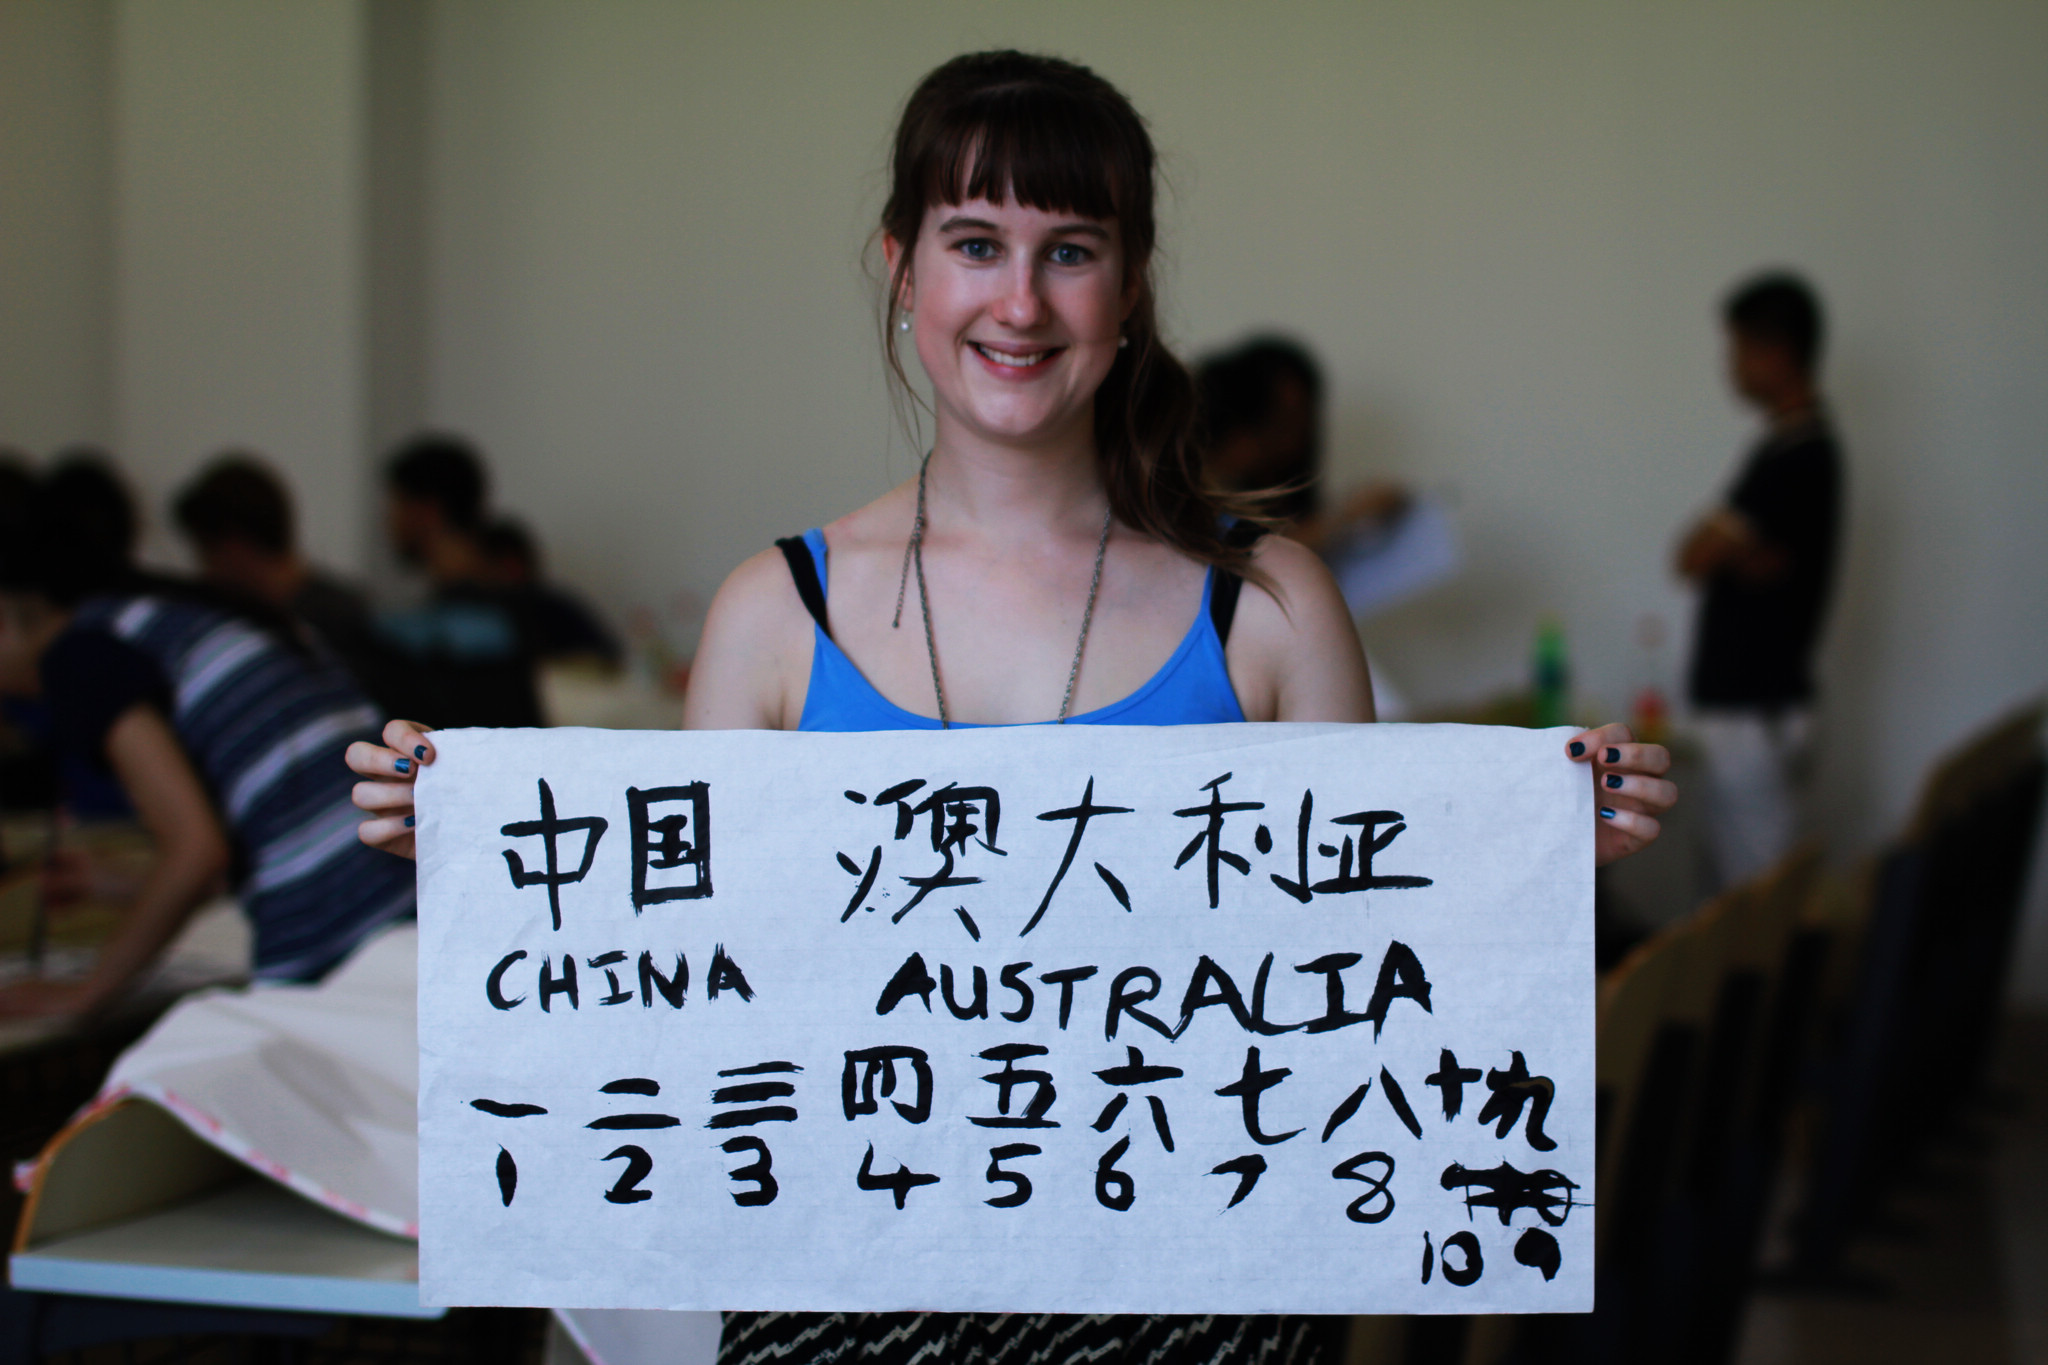 中国 澳大利亚
CHINA AUSTRALIA
一 二 三 四 五 六 七 八 十 九
1 2 3 4 5 6 7 8
10 9